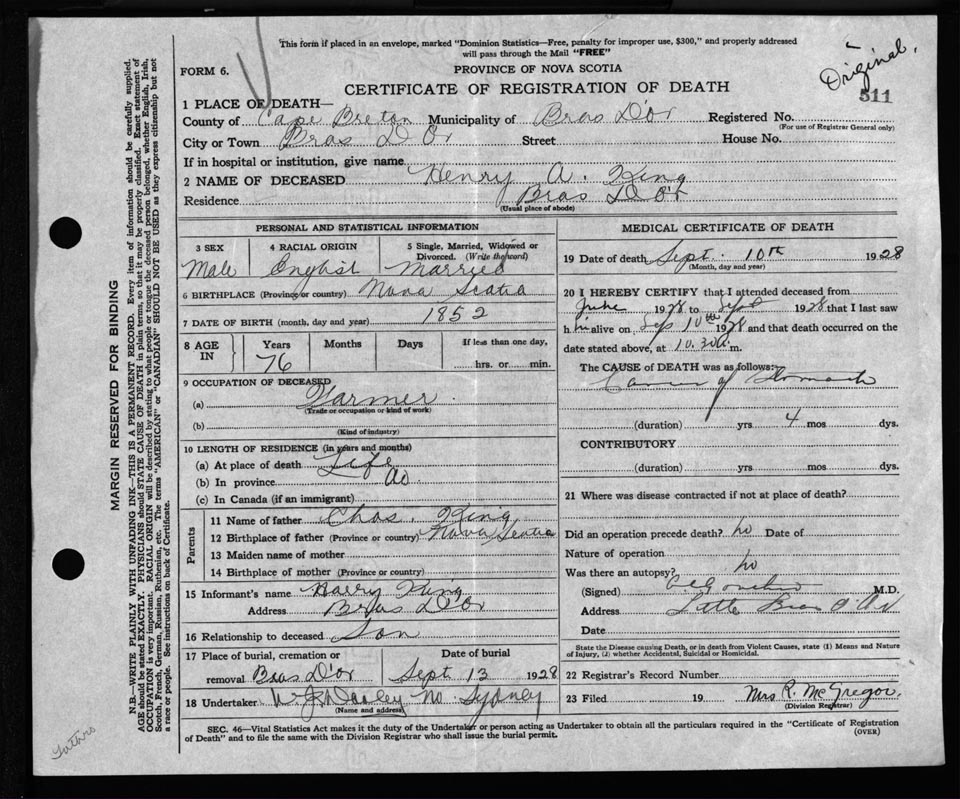 This form if placed in an envelope, marked "Dominion Statistics—Free, penalty for improper use, $300," and properly addressed
will pass through the Mail "FREE"
Original.
511
FORM 6.
PROVINCE OF NOVA SCOTIA
CERTIFICATE OF REGISTRATION OF DEATH
1 PLACE OF DEATH—
County of Cape Breton Municipality of Bras D'or Registered No.
(For use of Registrar General only)
City or Town Bras D'Or Street House No.
If in hospital or institution, give name
2 NAME OF DECEASED Henry A. King
Residence Bras D'or
(Usual place of abode)
PERSONAL AND STATISTICAL INFORMATION
3 SEX 4 RACIAL ORIGIN 5 Single, Married, Widowed or
Divorced. (Write the word)
Male English Married
6 BIRTHPLACE (Province or country) Nova Scotia
7 DATE OF BIRTH (month, day and year) 1852
8 AGE IN Years Months Days If less than one day,
76 hrs. or min.
9 OCCUPATION OF DECEASED
(a) Farmer
(Trade or occupation or kind of work)
(b)
(Kind of industry)
10 LENGTH OF RESIDENCE (in years and months)
(a) At place of death Life
(b) In province do
(c) In Canada (if an immigrant)
Parents
11 Name of father Chas. King
12 Birthplace of father (Province or country) Nova Scotia
13 Maiden name of mother
14 Birthplace of mother (Province or country)
15 Informant's name Harry King
Address Bras D'Or
16 Relationship to deceased Son
17 Place of burial, cremation or Date of burial
removal Bras D'or Sept 13 1928
18 Undertaker No. Sydney
(Name and address)
MEDICAL CERTIFICATE OF DEATH
19 Date of death Sept. 10th 1928
(Month, day and year)
20 I HEREBY CERTIFY that I attended deceased from
June 1928 to Sept 1928 that I last saw
him alive on Sep 10th 1928 and that death occurred on
date stated above, at 10.30a.m.
The CAUSE of DEATH was as follows:
Cancer of Stomach
(duration) yrs 4 mos dys.
CONTRIBUTORY
(duration) yrs mos dys.
21 Where was disease contracted if not at place of death?
Did an operation precede death? no Date of
Nature of operation
Was there an autopsy? no
(Signed) M.D.
Address Little Bras D'Or
Date
State the Disease causing Death, or in death from Violent Causes, state (1) Means and Nature
of Injury, (2) whether Accidental, Suicidal or Homicidal.
22 Registrar's Record Number
23 Filed 19 Mrs R. McGregor.
(Division Registrar)
SEC. 46—Vital Statistics Act makes it the duty of the Undertaker or person acting as Undertaker to obtain all the particulars required in the "Certificate of Registration
of Death" and to file the same with the Division Registrar who shall issue the burial permit.
(OVER)
MARGIN RESERVED FOR BINDING
N.B.—WRITE PLAINLY WITH UNFADING INK—THIS IS A PERMANENT RECORD. Every item of information should be carefully supplied.
AGE should be stated EXACTLY. PHYSICIANS should STATE CAUSE OF DEATH in plain terms, so that it may be properly classified. Exact statement of
OCCUPATION is very important. RACIAL ORIGIN will be described by stating to what people or tongue the deceased person belonged, whether English, Irish,
Scotch, French, German, Russian, Ruthenian, etc. The terms "AMERICAN" or "CANADIAN" SHOULD NOT BE USED as they express citizenship but not
a race or people. See instructions on back of Certificate.